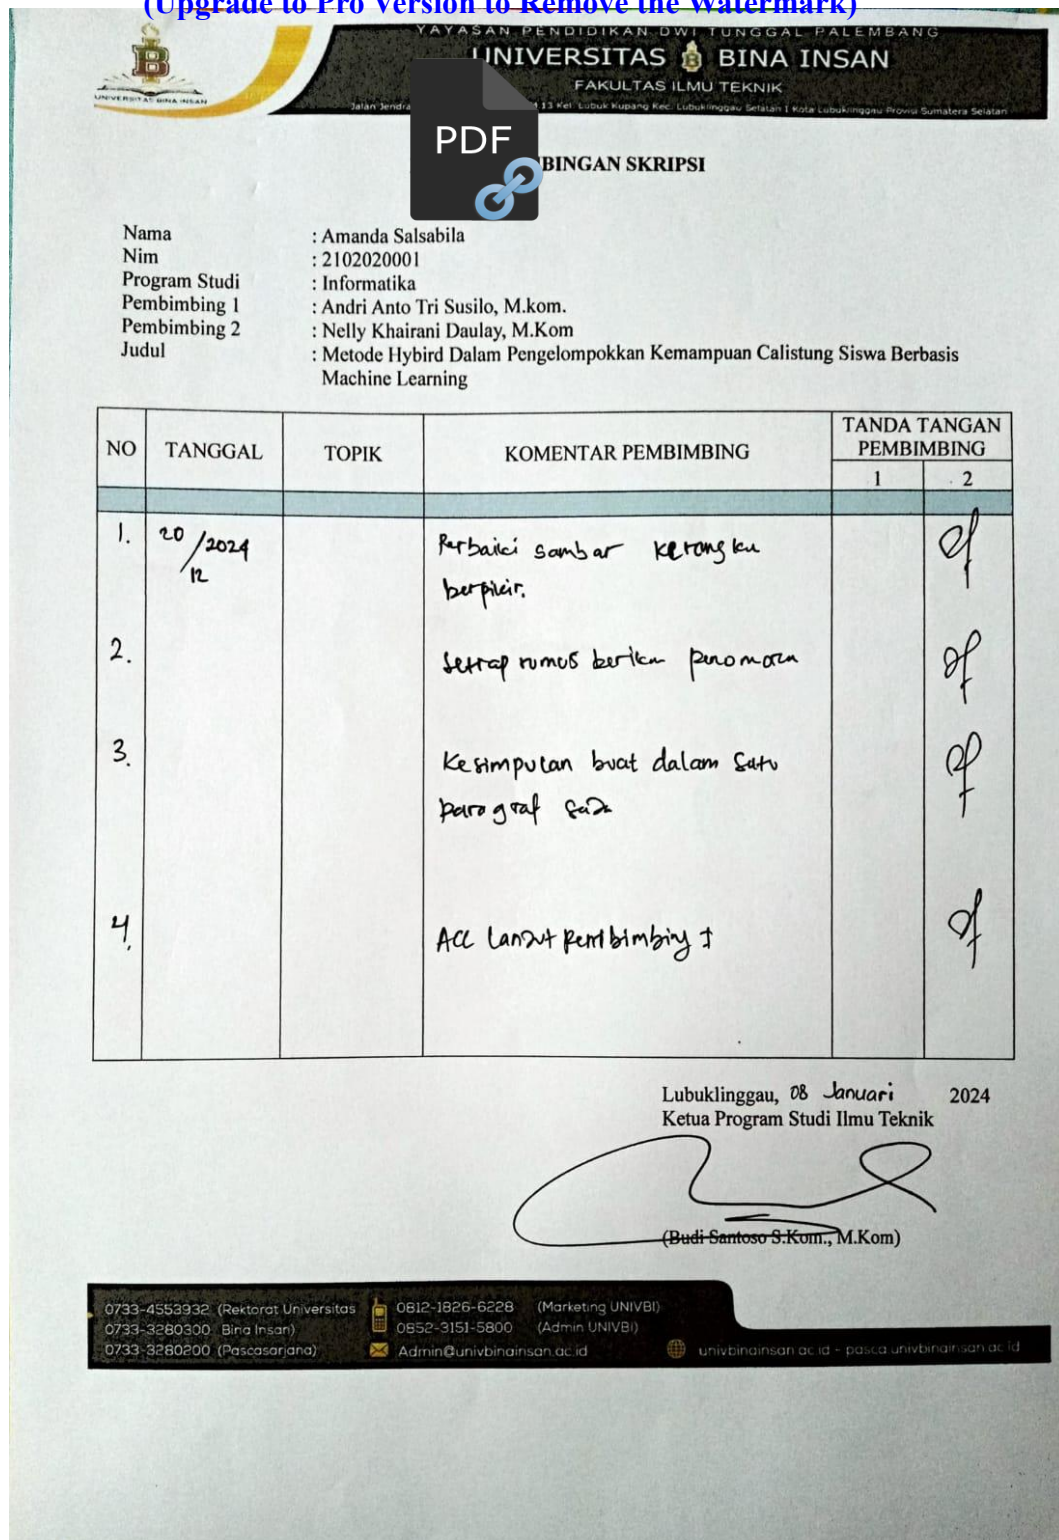 (Upgrade to Pro Version to Remove the Watermark)
YAYASAN PENDIDIKAN DWI TUNGGAL PALEMBANG
UNIVERSITAS BINA INSAN
FAKULTAS ILMU TEKNIK
Jalan Jendra 13 Kel. Lubuk Kupang Kec. Lubuklinggau Selatan I Kota Lubuklinggau Provisi Sumatera Selatan
UNIVERSITAS BINA INSAN
PDF
BINGAN SKRIPSI
Nama : Amanda Salsabila
Nim : 2102020001
Program Studi : Informatika
Pembimbing 1 : Andri Anto Tri Susilo, M.kom.
Pembimbing 2 : Nelly Khairani Daulay, M.Kom
Judul : Metode Hybird Dalam Pengelompokkan Kemampuan Calistung Siswa Berbasis
Machine Learning
NO TANGGAL TOPIK KOMENTAR PEMBIMBING TANDA TANGAN PEMBIMBING
1 2
1. 20/12/2024 Perbaiki gambar kerangka
berpikir.
2. Setiap rumus berikan penomoran
3. Kesimpulan buat dalam satu
paragraf saja
4. ACC lanjut pembimbing I
Lubuklinggau, 08 Januari 2024
Ketua Program Studi Ilmu Teknik
(Budi Santoso S.Kom., M.Kom)
0733-4553932 (Rektorat Universitas 0812-1826-6228 (Marketing UNIVBI)
0733-3280300 Bina Insan) 0852-3151-5800 (Admin UNIVBI)
0733-3280200 (Pascasarjana) Admin@univbinainsan.ac.id univbinainsan.ac.id - pasca.univbinainsan.ac.id